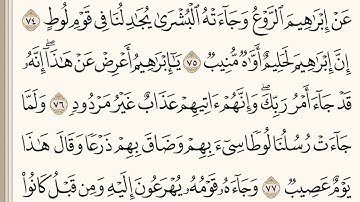 عَنْ إِبْرَٰهِيمَ ٱلرَّوْعُ وَجَآءَتْهُ ٱلْبُشْرَىٰ يُجَٰدِلُنَا فِى قَوْمِ لُوطٍ ٧٤
إِنَّ إِبْرَٰهِيمَ لَحَلِيمٌ أَوَّٰهٌ مُّنِيبٌ ٧٥ يَٰٓإِبْرَٰهِيمُ أَعْرِضْ عَنْ هَٰذَآ ۖ إِنَّهُۥ
قَدْ جَآءَ أَمْرُ رَبِّكَ ۖ وَإِنَّهُمْ ءَاتِيهِمْ عَذَابٌ غَيْرُ مَرْدُودٍ ٧٦ وَلَمَّا
جَآءَتْ رُسُلُنَا لُوطًا سِىٓءَ بِهِمْ وَضَاقَ بِهِمْ ذَرْعًا وَقَالَ هَٰذَا
يَوْمٌ عَصِيبٌ ٧٧ وَجَآءَهُۥ قَوْمُهُۥ يُهْرَعُونَ إِلَيْهِ وَمِن قَبْلُ كَانُوا۟